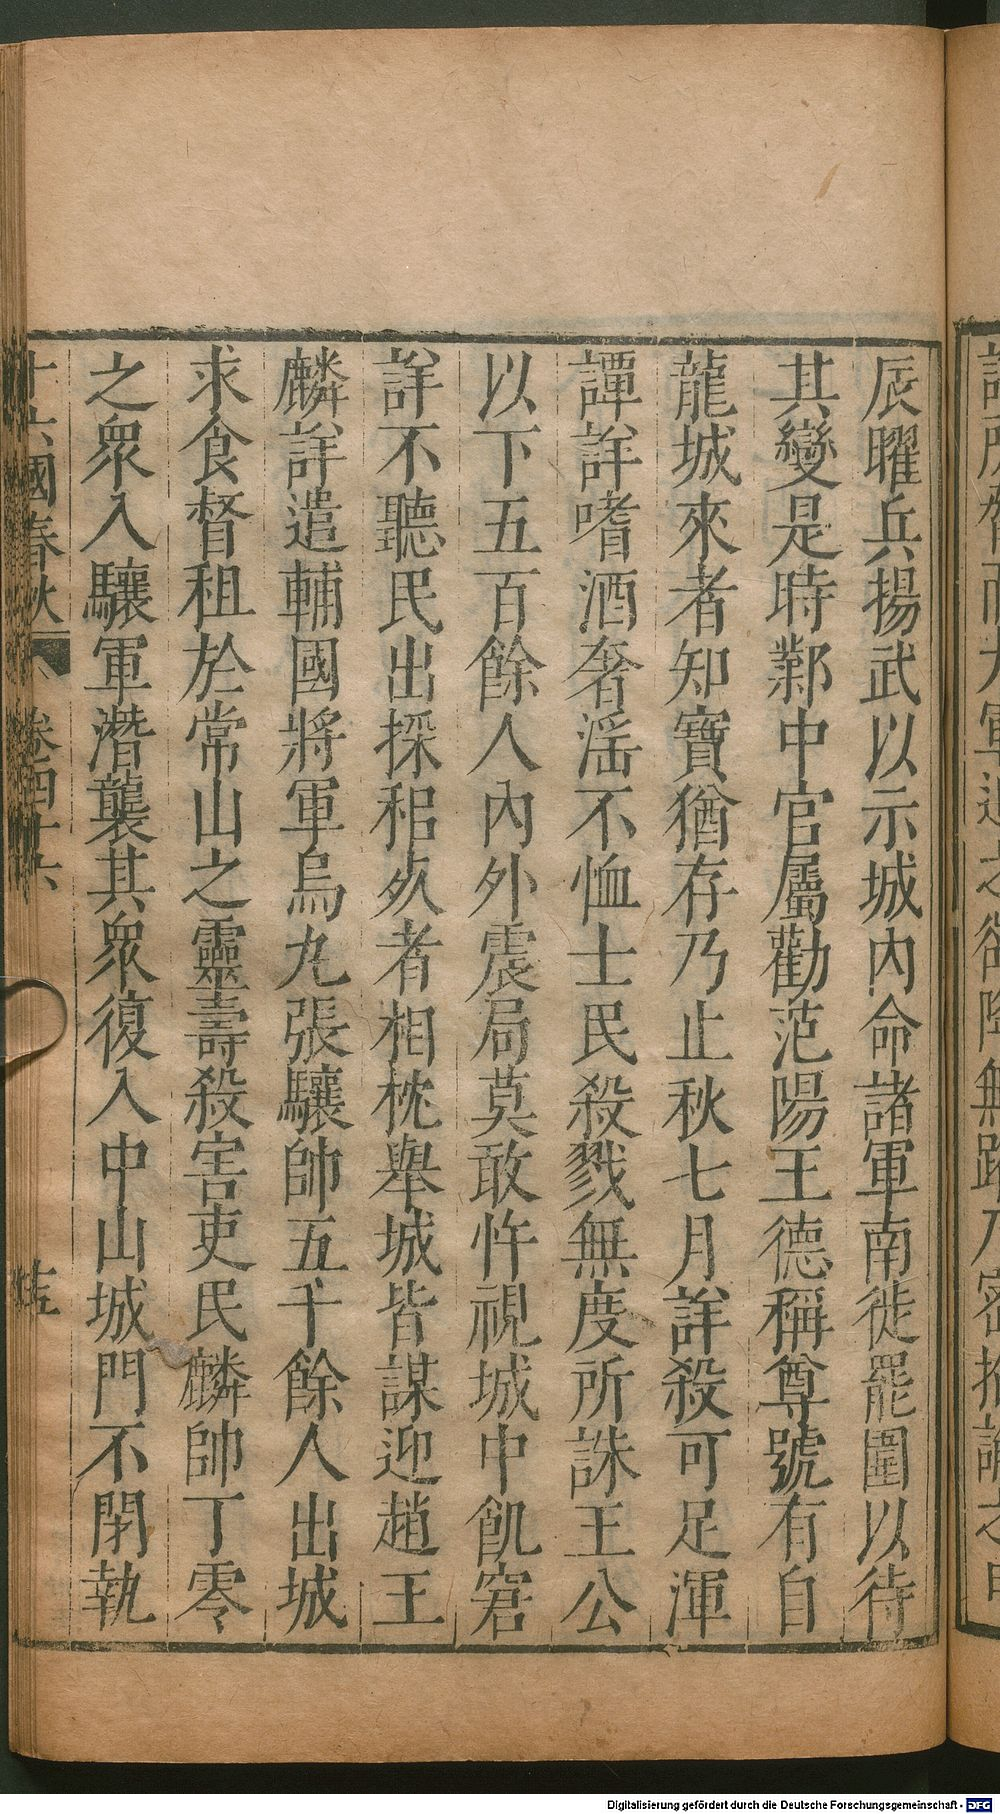 辰曜兵揚武以示城內命諸軍南徙罷圍以待
其變是時鄴中官屬勸范陽王德稱尊號有自
龍城來者知寶猶存乃止秋七月詳殺可足渾
譚詳嗜酒奢淫不恤士民殺戮無度所誅王公
以下五百餘人內外震局莫敢忤視城中飢窘
詳不聽民出採稆㱙者相枕舉城皆謀迎趙王
麟詳遣輔國將軍烏九張驤帥五千餘人出城
求食督租於常山之靈壽殺害吏民麟帥丁零
之眾入驤軍潛襲其眾復入中山城門不閉執
十六國春秋 卷四十六
Digitalisierung gefördert durch die Deutsche Forschungsgemeinschaft - DFG